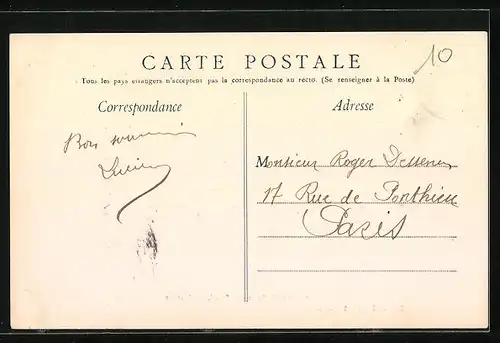 10
CARTE POSTALE
Tous les pays étrangers n'acceptent pas la correspondance au recto. (Se renseigner à la Poste)
Correspondance
Adresse
Bon souvenir
Lucien
Monsieur Roger
17 Rue de Ponthieu
Paris